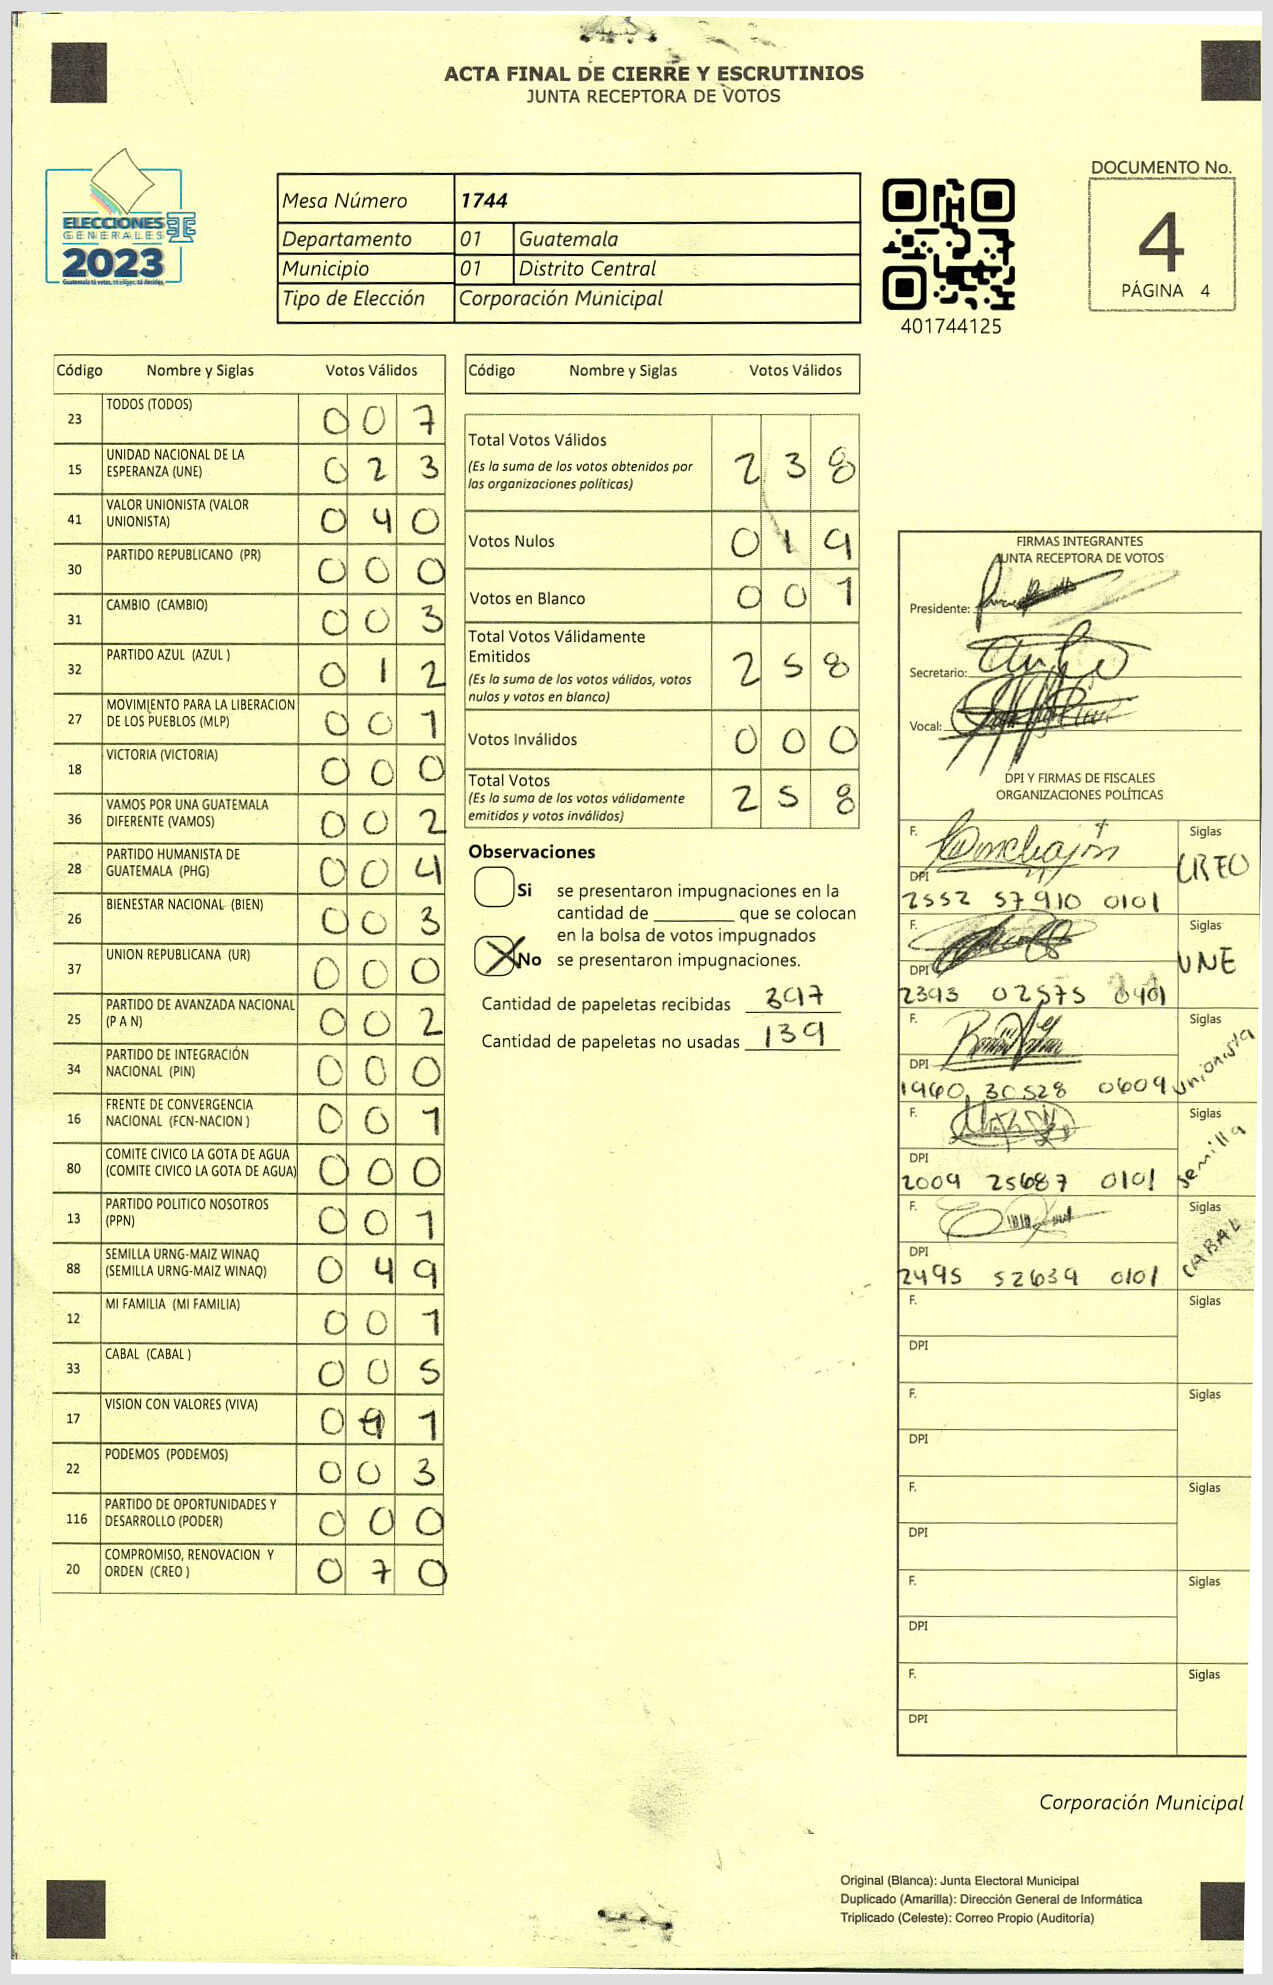 ACTA FINAL DE CIERRE Y ESCRUTINIOS
JUNTA RECEPTORA DE VOTOS
ELECCIONES
GENERALES
2023
Guatemala tú votas, tú eliges, tú decides.
Mesa Número 1744
Departamento 01 Guatemala
Municipio 01 Distrito Central
Tipo de Elección Corporación Municipal
401744125
DOCUMENTO No.
4
PÁGINA 4
Código Nombre y Siglas Votos Válidos
23 TODOS (TODOS) 0 0 7
15 UNIDAD NACIONAL DE LA
ESPERANZA (UNE) 0 2 3
41 VALOR UNIONISTA (VALOR
UNIONISTA) 0 4 0
30 PARTIDO REPUBLICANO (PR) 0 0 0
31 CAMBIO (CAMBIO) 0 0 3
32 PARTIDO AZUL (AZUL ) 0 1 2
27 MOVIMIENTO PARA LA LIBERACION
DE LOS PUEBLOS (MLP) 0 0 1
18 VICTORIA (VICTORIA) 0 0 0
36 VAMOS POR UNA GUATEMALA
DIFERENTE (VAMOS) 0 0 2
28 PARTIDO HUMANISTA DE
GUATEMALA (PHG) 0 0 4
26 BIENESTAR NACIONAL (BIEN) 0 0 3
37 UNION REPUBLICANA (UR) 0 0 0
25 PARTIDO DE AVANZADA NACIONAL
(P A N) 0 0 2
34 PARTIDO DE INTEGRACIÓN
NACIONAL (PIN) 0 0 0
16 FRENTE DE CONVERGENCIA
NACIONAL (FCN-NACION ) 0 0 1
80 COMITE CIVICO LA GOTA DE AGUA
(COMITE CIVICO LA GOTA DE AGUA) 0 0 0
13 PARTIDO POLITICO NOSOTROS
(PPN) 0 0 1
88 SEMILLA URNG-MAIZ WINAQ
(SEMILLA URNG-MAIZ WINAQ) 0 4 9
12 MI FAMILIA (MI FAMILIA) 0 0 1
33 CABAL (CABAL ) 0 0 5
17 VISION CON VALORES (VIVA) 0 1
22 PODEMOS (PODEMOS) 0 0 3
116 PARTIDO DE OPORTUNIDADES Y
DESARROLLO (PODER) 0 0 0
20 COMPROMISO, RENOVACION Y
ORDEN (CREO ) 0 7 0
Código Nombre y Siglas Votos Válidos
Total Votos Válidos
(Es la suma de los votos obtenidos por
las organizaciones políticas) 2 3 8
Votos Nulos 0 1 9
Votos en Blanco 0 0 1
Total Votos Válidamente
Emitidos
(Es la suma de los votos válidos, votos
nulos y votos en blanco) 2 5 8
Votos Inválidos 0 0 0
Total Votos
(Es la suma de los votos válidamente
emitidos y votos inválidos) 2 5 8
Observaciones
Si se presentaron impugnaciones en la
cantidad de ________ que se colocan
en la bolsa de votos impugnados
No se presentaron impugnaciones.
Cantidad de papeletas recibidas 397
Cantidad de papeletas no usadas 139
FIRMAS INTEGRANTES
JUNTA RECEPTORA DE VOTOS
Presidente:
Secretario:
Vocal:
DPI Y FIRMAS DE FISCALES
ORGANIZACIONES POLÍTICAS
F. Siglas
CREO
DPI
2552 57910 0101
F. Siglas
UNE
DPI
2393 02575 0401
F. Siglas
unionista
DPI
1960 30528 0609
F. Siglas
semilla
DPI
2009 25687 0101
F. Siglas
CABAL
DPI
2495 52639 0101
F. Siglas
DPI
F. Siglas
DPI
F. Siglas
DPI
F. Siglas
DPI
F. Siglas
DPI
Corporación Municipal
Original (Blanca): Junta Electoral Municipal
Duplicado (Amarilla): Dirección General de Informática
Triplicado (Celeste): Correo Propio (Auditoría)